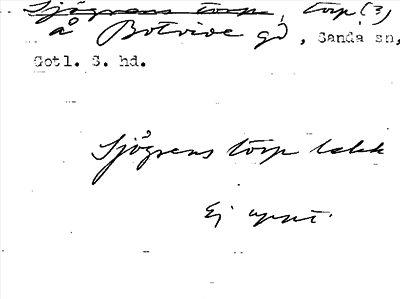 Sjögrens torp, torp (3)
å Botvide gd, Sanda sn,
Gotl. S. hd.
Sjögrens torp
Ej uppt.